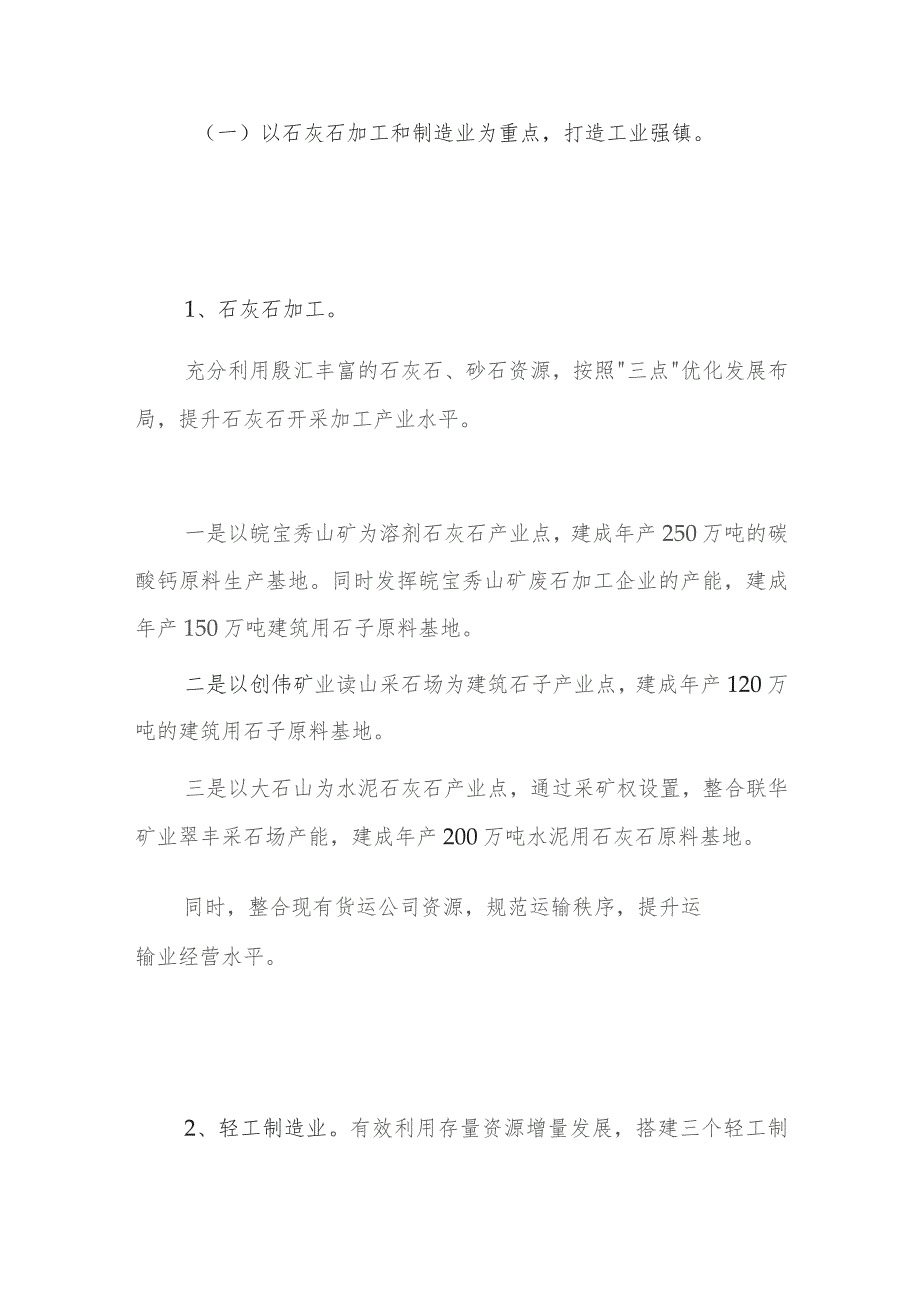 （一）以石灰石加工和制造业为重点，打造工业强镇。
1、石灰石加工。
充分利用殷汇丰富的石灰石、砂石资源，按照"三点"优化发展布
局，提升石灰石开采加工产业水平。
一是以皖宝秀山矿为溶剂石灰石产业点，建成年产250万吨的碳
酸钙原料生产基地。同时发挥皖宝秀山矿废石加工企业的产能，建成
年产150万吨建筑用石子原料基地。
二是以创伟矿业读山采石场为建筑石子产业点，建成年产120万
吨的建筑用石子原料基地。
三是以大石山为水泥石灰石产业点，通过采矿权设置，整合联华
矿业翠丰采石场产能，建成年产200万吨水泥用石灰石原料基地。
同时，整合现有货运公司资源，规范运输秩序，提升运
输业经营水平。
2、轻工制造业。有效利用存量资源增量发展，搭建三个轻工制